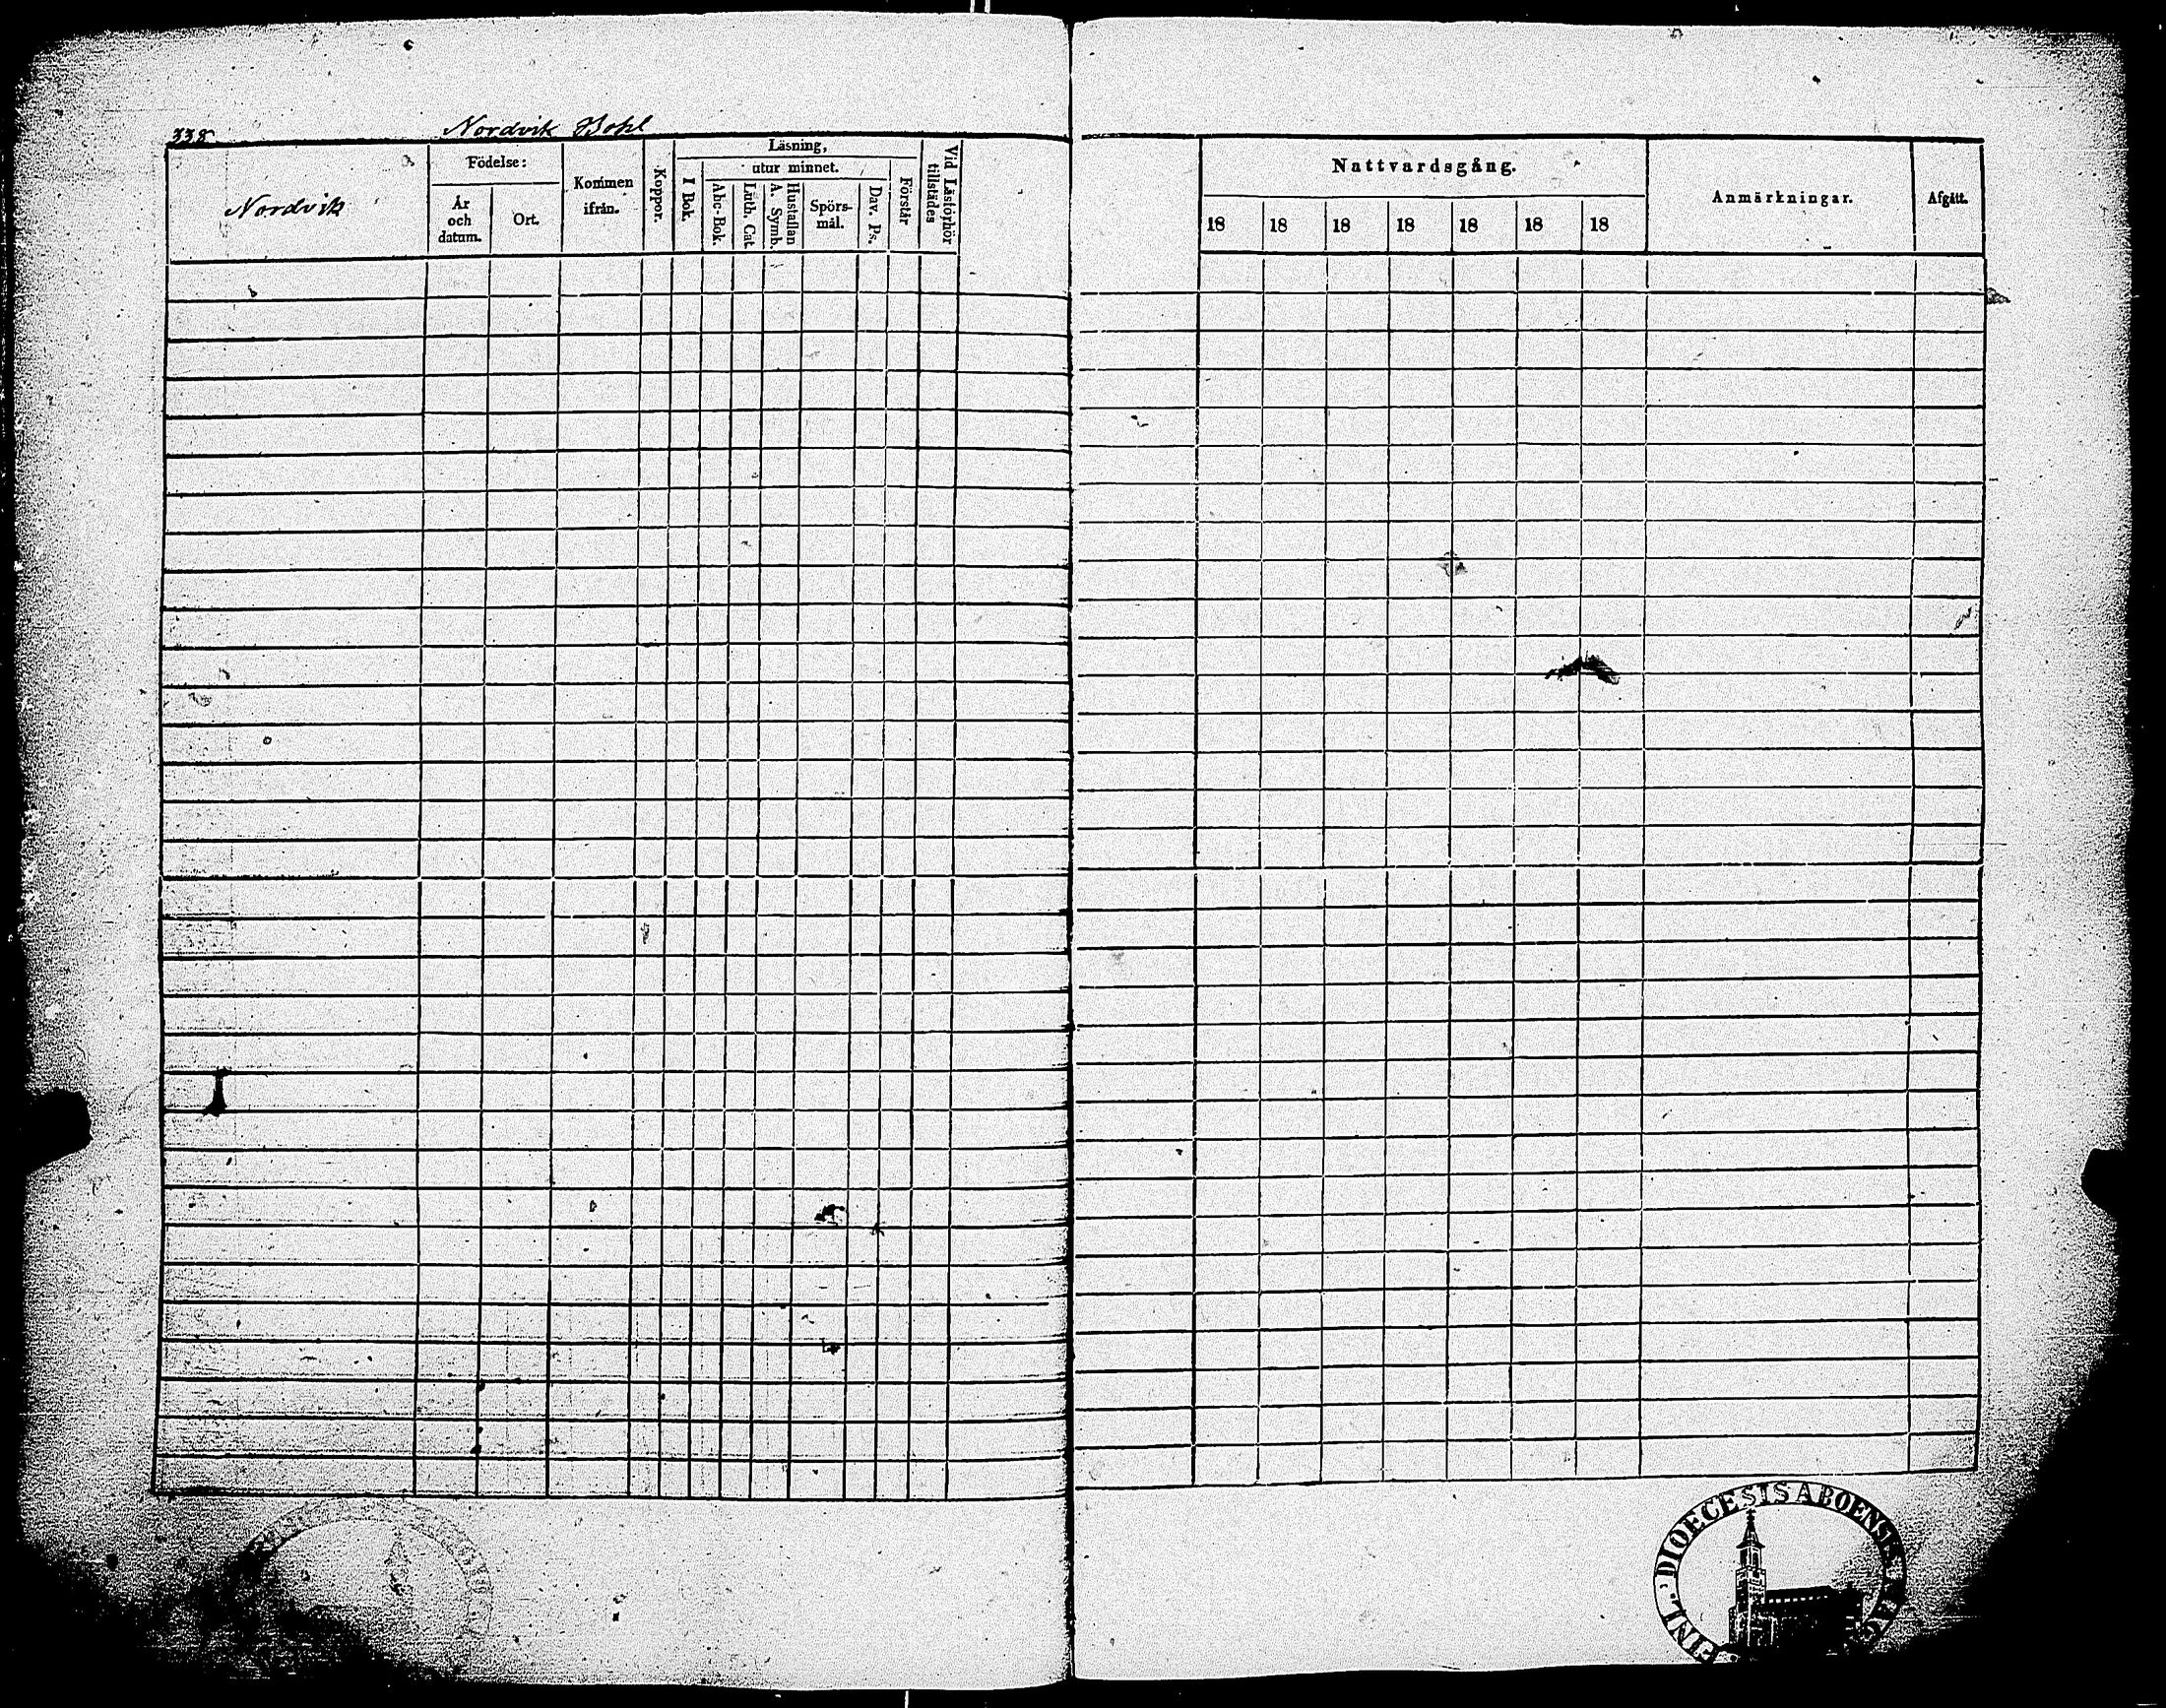 338
Nordvik Bohl
Nordvik
Födelse:
År och datum.
Ort.
Kommen ifrån.
Koppor.
Läsning,
I Bok.
utur minnet.
Abc-Bok.
Luth. Cat.
Hustaflan A. Symb.
Spörs-mål.
Dav. Ps.
Förstår
Vid Läsförhör tillstädes
Nattvardsgång.
18 18 18 18 18 18 18
Anmärkningar.
Afgått.
DIOECESIS ABOENSIS